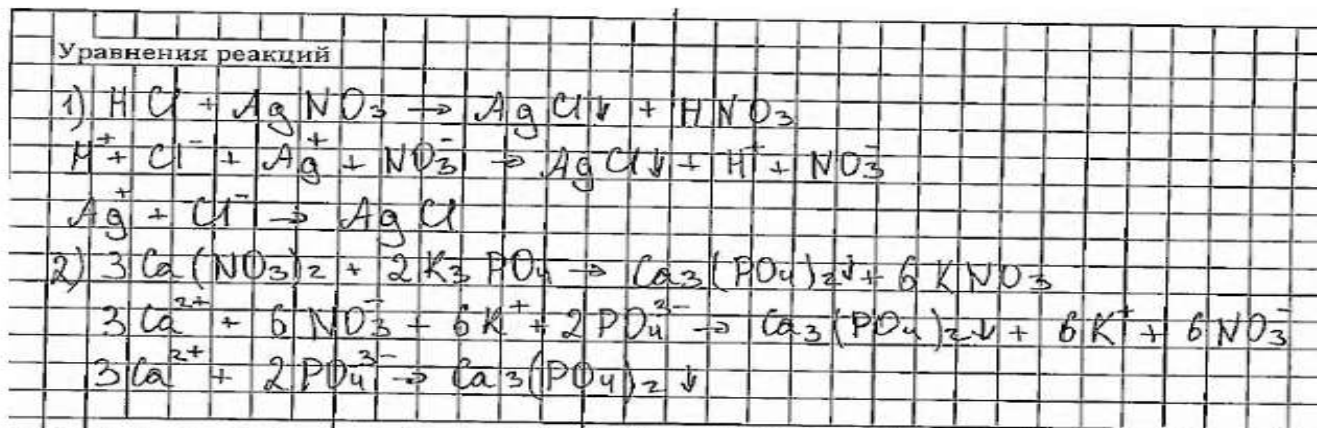 Уравнения реакций
1) HCl + AgNO₃ → AgCl↓ + HNO₃
H⁺ + Cl⁻ + Ag⁺ + NO₃⁻ → AgCl↓ + H⁺ + NO₃⁻
Ag⁺ + Cl⁻ → AgCl
2) 3Ca(NO₃)₂ + 2K₃PO₄ → Ca₃(PO₄)₂↓ + 6KNO₃
3Ca²⁺ + 6NO₃⁻ + 6K⁺ + 2PO₄³⁻ → Ca₃(PO₄)₂↓ + 6K⁺ + 6NO₃⁻
3Ca²⁺ + 2PO₄³⁻ → Ca₃(PO₄)₂↓